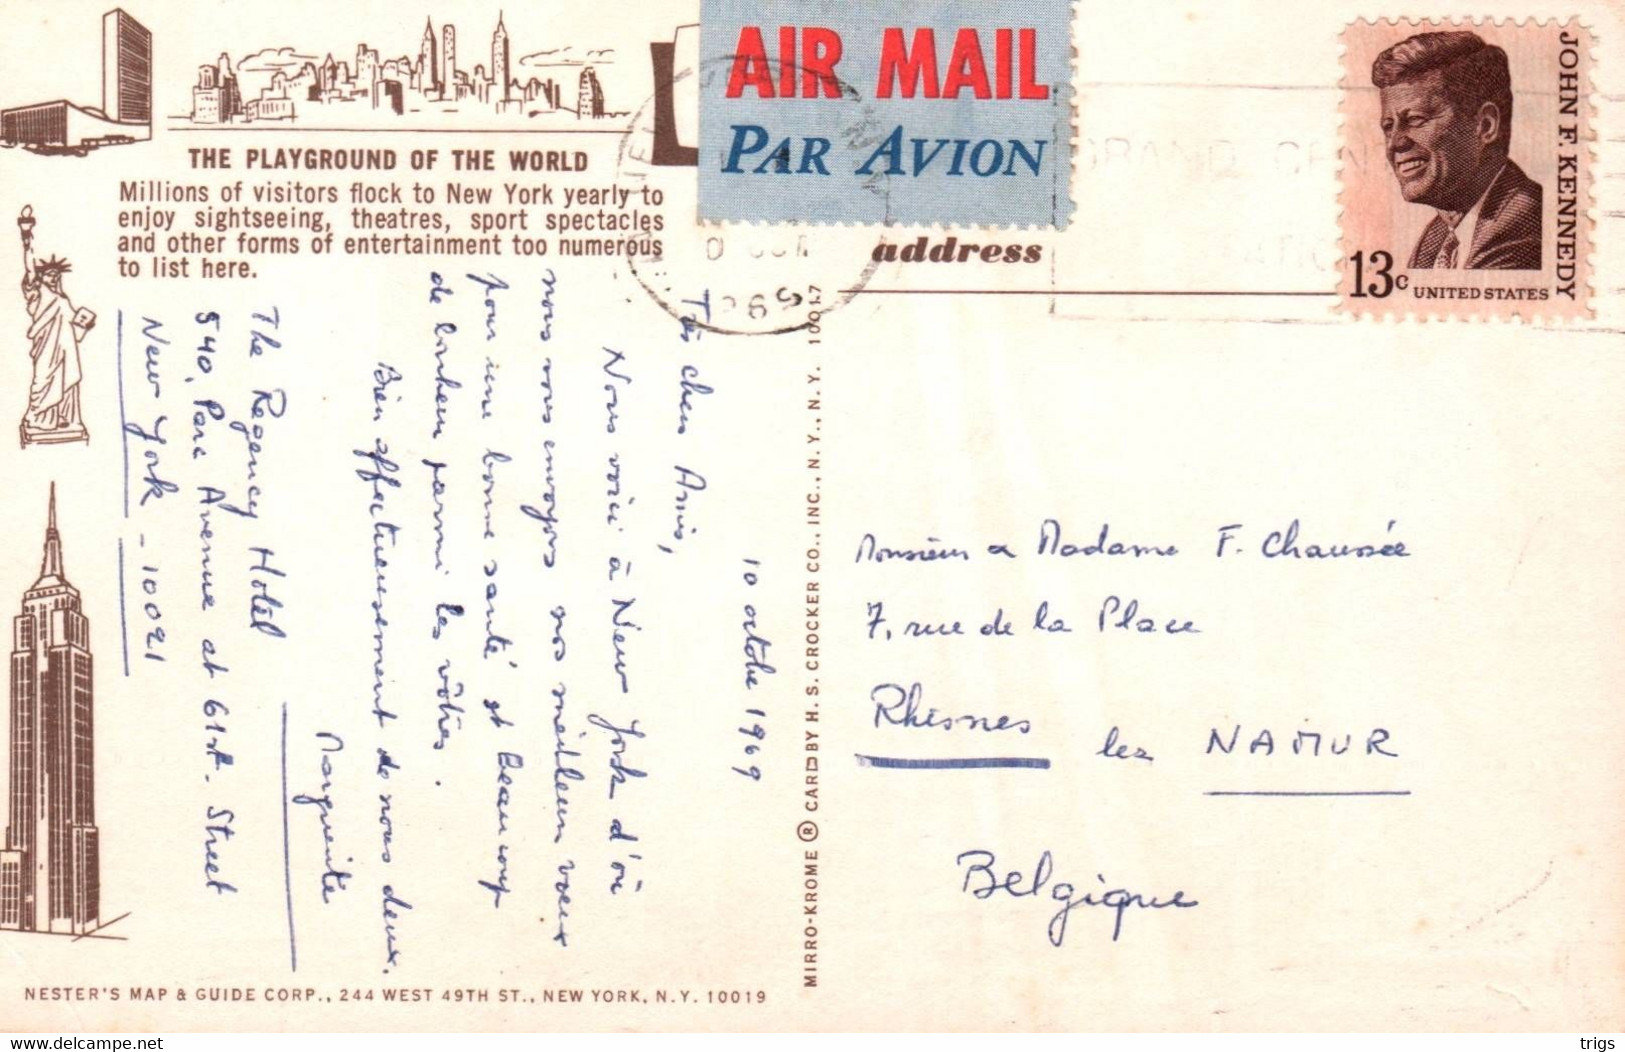 THE PLAYGROUND OF THE WORLD
Millions of visitors flock to New York yearly to
enjoy sightseeing, theatres, sport spectacles
and other forms of entertainment too numerous
to list here.
AIR MAIL
PAR AVION
address
JOHN F. KENNEDY
13c UNITED STATES
10 octobre 1969
Très chers Amis,
Nous voici à New York d'où
nous vous envoyons nos meilleurs vœux
pour une bonne santé et beaucoup
de bonheur parmi les vôtres.
Bien affectueusement de nous deux.
Marguerite
The Regency Hotel
540, Parc Avenue at 61st. Street
New York - 10021
MIRRO-KROME ® CARD BY H. S. CROCKER CO., INC., N. Y., N. Y. 10017
Monsieur & Madame F. Chaussée
7, rue de la Place
Rhisnes lez NAMUR
Belgique
NESTER'S MAP & GUIDE CORP., 244 WEST 49TH ST., NEW YORK, N.Y. 10019
www.delcampe.net
trigs